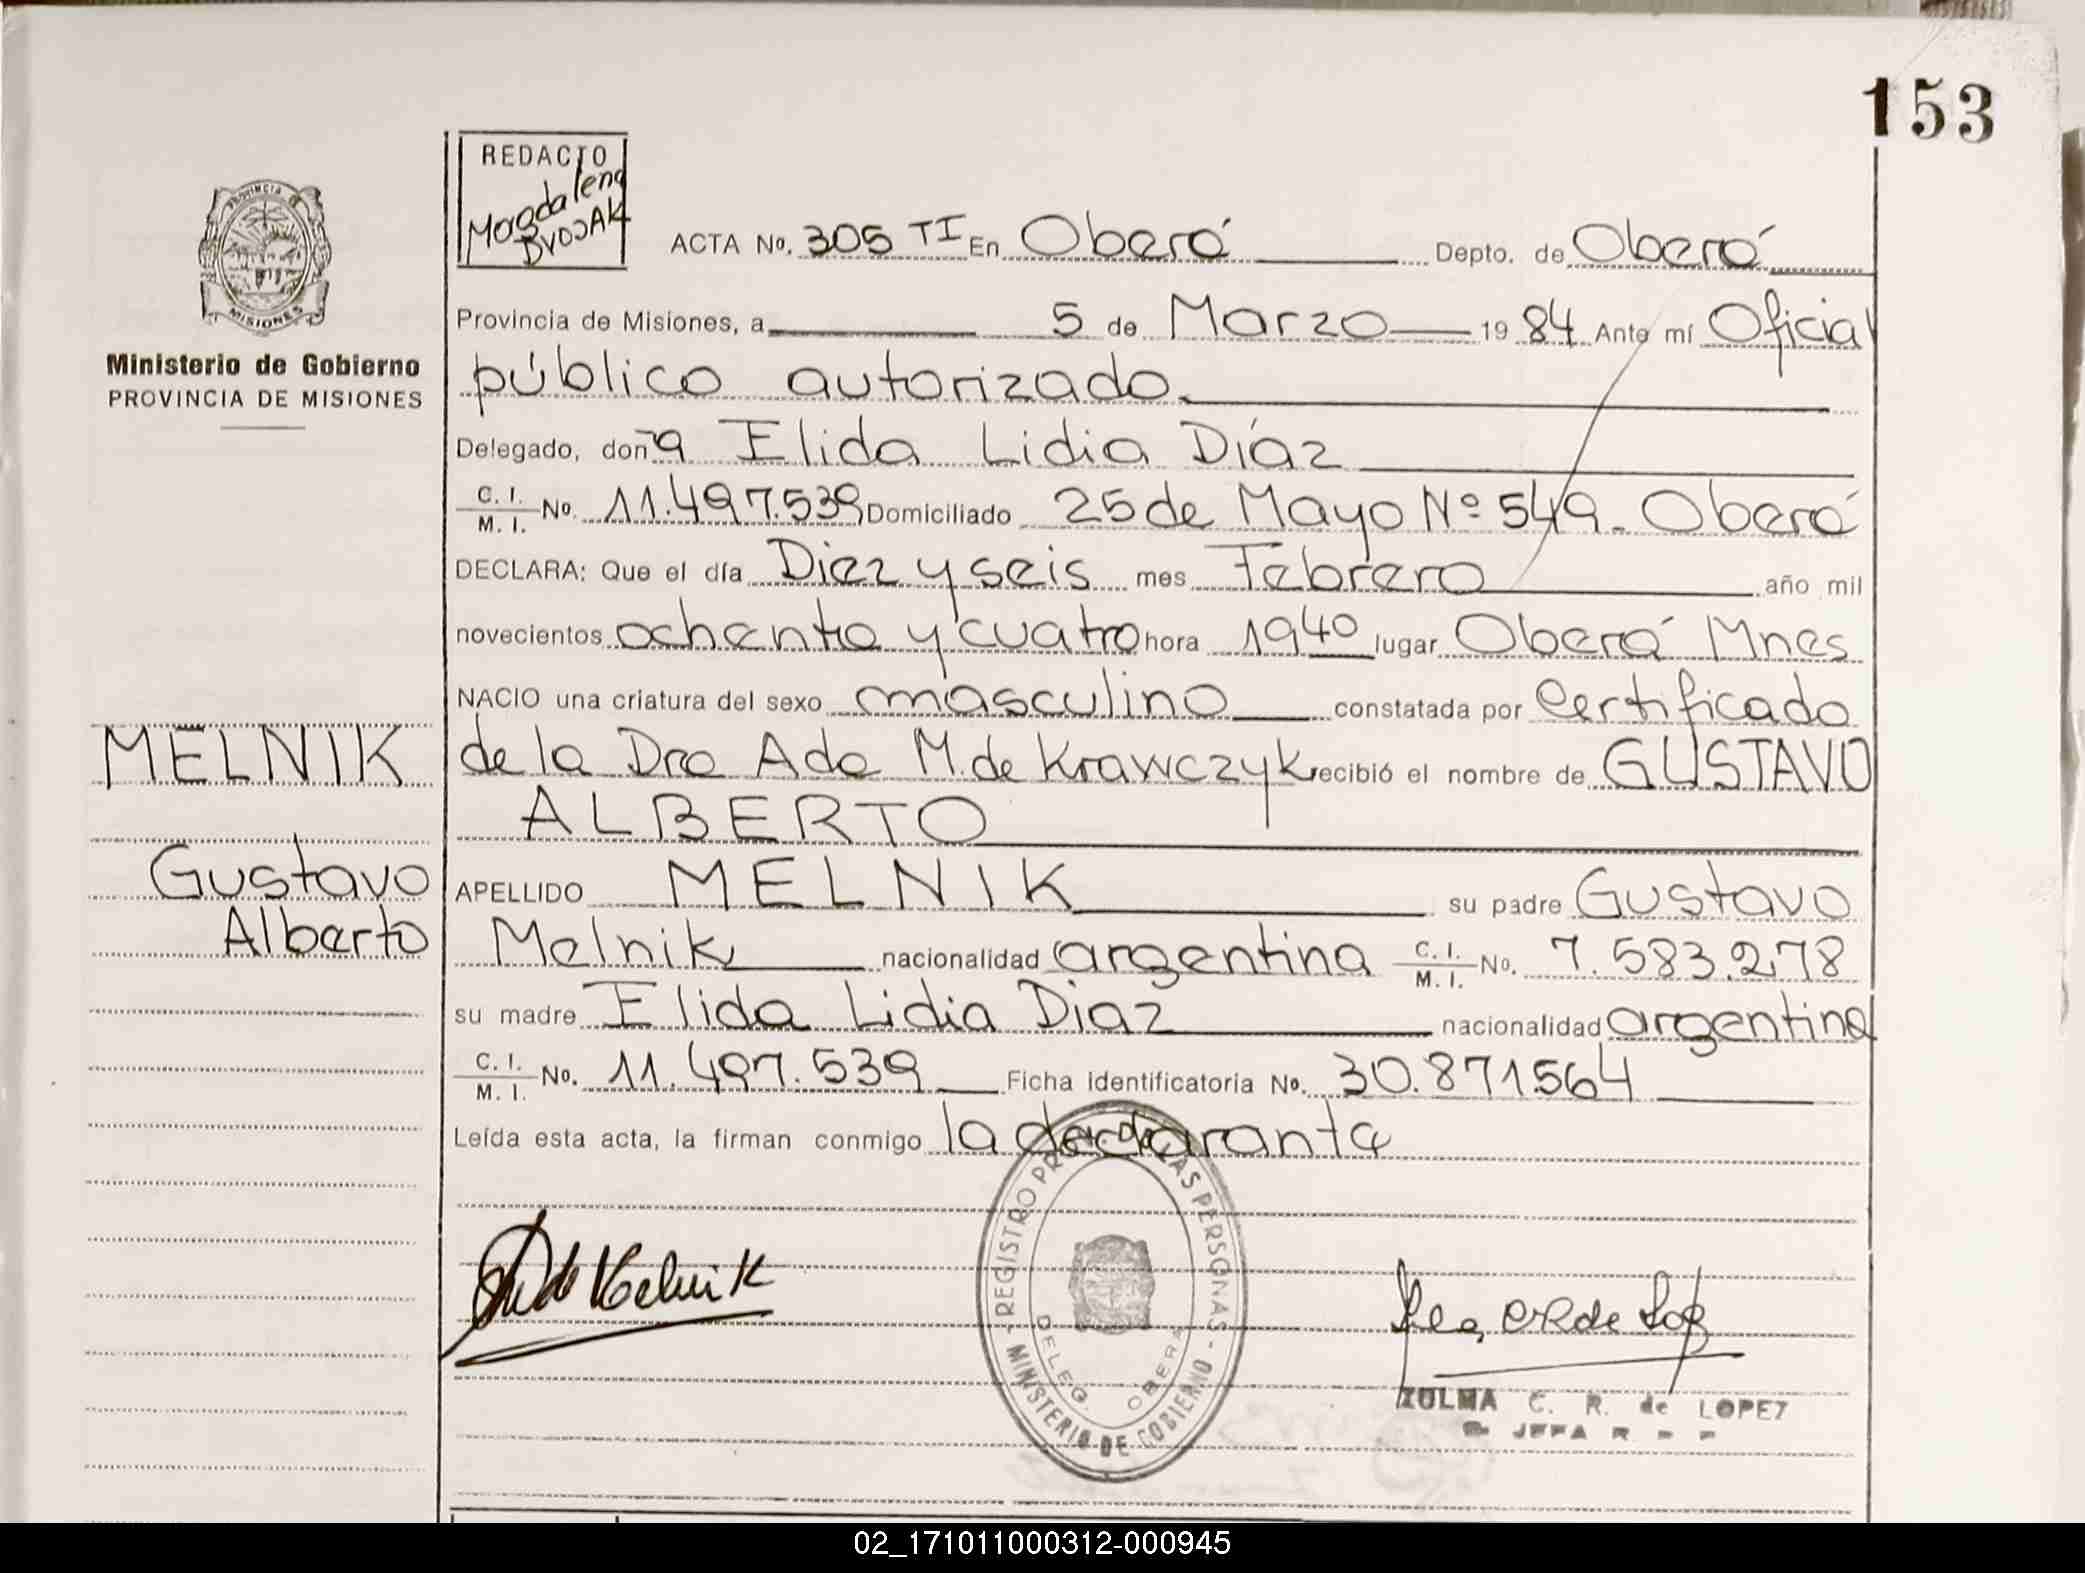 153
REDACTO
Magdalena
PROVINCIA
MISIONES
ACTA No. 305 TI En Oberá Depto. de Oberá
Provincia de Misiones, a 5 de Marzo 1984 Ante mí Oficial
Ministerio de Gobierno
PROVINCIA DE MISIONES
público autorizado.
Delegado, doña Elida Lidia Díaz
C. I.
M. I. No. 11.497.539 Domiciliado 25 de Mayo Nº 549. Oberá
DECLARA: Que el día Diez y seis mes Febrero año mil
novecientos ochenta y cuatro hora 1940 lugar Oberá Mnes
NACIO una criatura del sexo masculino constatada por Certificado
MELNIK
de la Dra Ada M. de Krawczyk recibió el nombre de GUSTAVO
ALBERTO
Gustavo
Alberto
APELLIDO MELNIK su padre Gustavo
Melnik nacionalidad argentina C. I.
M. I. No. 7.583.278
su madre Elida Lidia Diaz nacionalidad argentina
C. I.
M. I. No. 11.497.539 Ficha identificatoria No. 30.871564
Leída esta acta, la firman conmigo la declarante
REGISTRO PERSONAS
MINISTERIO DE GOBIERNO
DELEG. OBERA
Melnik
ZULMA C. R. de LOPEZ
JEFA
02_171011000312-000945